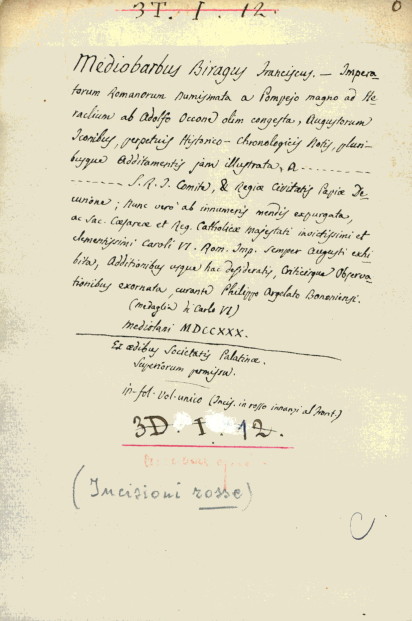 3T. I. 12.
Mediobarbus Biragus Franciscus. — Impera-
torum Romanorum Numismata a Pompejo magno ad He-
raclium ab Adolfo Occone olim congesta, Augustorum
Iconibus, perpetuis Historico-Chronologicis Notis, pluri-
busque Additamentis jam illustrata, a
S. R. I. Comite, & Regiæ Civitatis Papiæ De-
curione; Nunc vero ab innumeris mendis expurgata,
ac Sac. Cæsareæ et Reg. Catholicæ Majestati invictissimi et
clementissimi Caroli VI. Rom. Imp. semper Augusti exhi-
bita, Additionibus usque hac desideratis, Criticisque Observa-
tionibus exornata, curante Philippo Argelato Bononiensi.
(medaglia di Carlo VI)
Mediolani MDCCXXX.
Ex ædibus Societatis Palatinæ.
Superiorum permissu.
in-fol. vol. unico (Incis. in rosso innanzi al Front.)
3D. I. 12.
(Incisioni rosse)